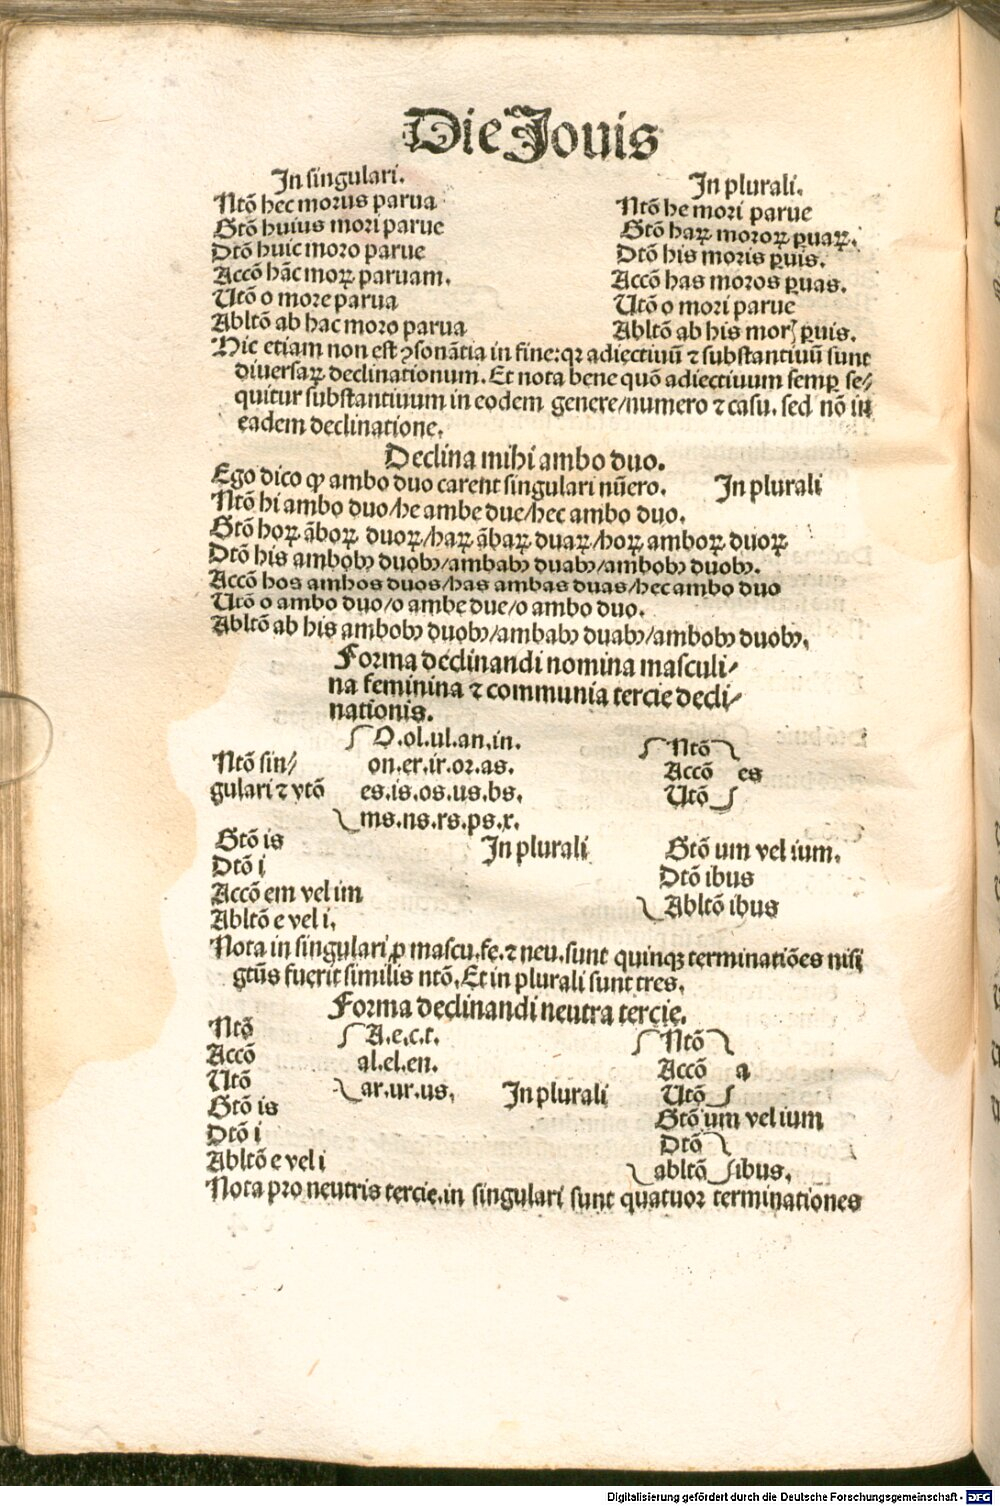 Die Jouis
In singulari.
Ntō hec morus parua
Gtō huius mori parue
Dtō huic moro parue
Accō hāc moꝝ paruam.
Utō o more parua
Abltō ab hac moro parua
In plurali.
Ntō he mori parue
Gtō haꝝ moroꝝ ꝑuaꝝ.
Dtō his moris ꝑuis.
Accō has moros ꝑuas.
Utō o mori parue
Abltō ab his morꝭ ꝑuis.
Hic etiam non est ꝯsonātia in fine: qꝛ adiectiuū ⁊ substantiuū sunt
diuersaꝝ declinationum. Et nota bene quō adiectiuum semꝑ se⸗
quitur substantiuum in eodem genere/numero ⁊ casu. sed nō in
eadem declinatione.
Declina mihi ambo duo.
Ego dico ꝙ ambo duo carent singulari nūero. In plurali
Ntō hi ambo duo/he ambe due/hec ambo duo.
Gtō hoꝝ āboꝝ duoꝝ/haꝝ ābaꝝ duaꝝ/hoꝝ amboꝝ duoꝝ
Dtō his ambobꝫ duobꝫ/ambabꝫ duabꝫ/ambobꝫ duobꝫ.
Accō hos ambos duos/has ambas duas/hec ambo duo
Utō o ambo duo/o ambe due/o ambo duo.
Abltō ab his ambobꝫ duobꝫ/ambabꝫ duabꝫ/ambobꝫ duobꝫ.
Forma declinandi nomina masculi⸗
na feminina ⁊ communia tercie decli⸗
nationis.
Ntō sin⸗
gulari ⁊ vtō
O.ol.ul.an.in.
on.er.ir.or.as.
es.is.os.us.bs.
ms.ns.rs.ps.x.
Gtō is
Dtō i
Accō em vel im
Abltō e vel i.
In plurali
Ntō
Accō es
Utō
Gtō um vel ium.
Dtō ibus
Abltō ibus
Nota in singulari ꝓ mascu.fe.⁊ neu.sunt quinqꝫ terminatiōes nisi
gtūs fuerit similis ntō. Et in plurali sunt tres.
Forma declinandi neutra tercie.
Ntō
Accō
Utō
Gtō is
Dtō i
Abltō e vel i
A.e.c.t.
al.el.en.
ar.ur.us.
In plurali
Ntō
Accō a
Utō
Gtō um vel ium
Dtō
abltō ibus.
Nota pro neutris tercie.in singulari sunt quatuor terminationes
Digitalisierung gefördert durch die Deutsche Forschungsgemeinschaft - DFG